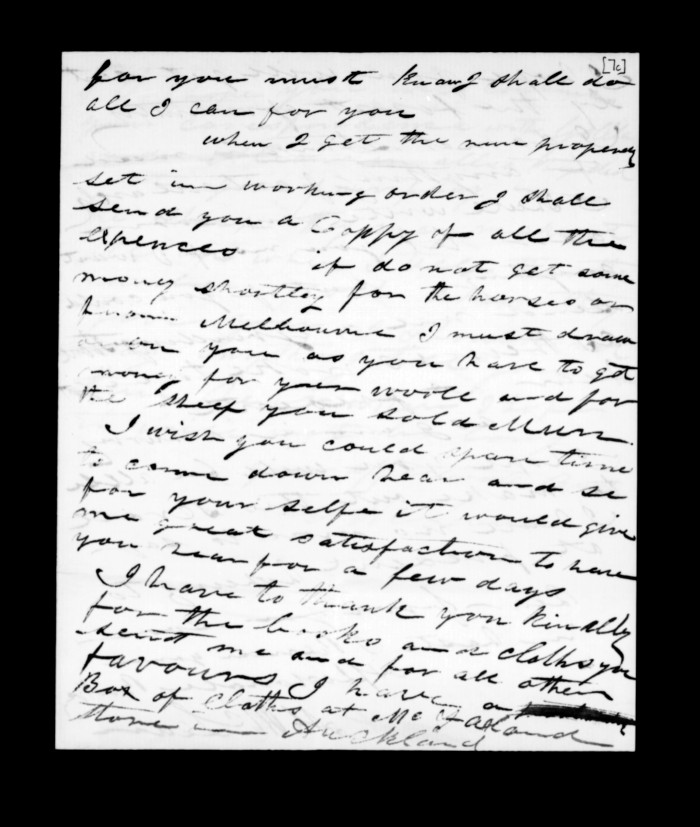 [7c]
for you must know I shall do
all I can for you
when I get the new property
set inn working order I shall
send you a Coppy of all the
expences if do not get some
money shortley for the horses or
from Melbourne I must draw
on you as you have to get
money for your woole and for
the sheep you sold
I wish you could spare time
to come down hear and se
for your selfe it would give
me great satisfaction to have
you hear for a few days
I have to thank you kindly
for the books and cloths you
sent me and for all other
favours I have a
Box of Cloths at
Store in Auckland